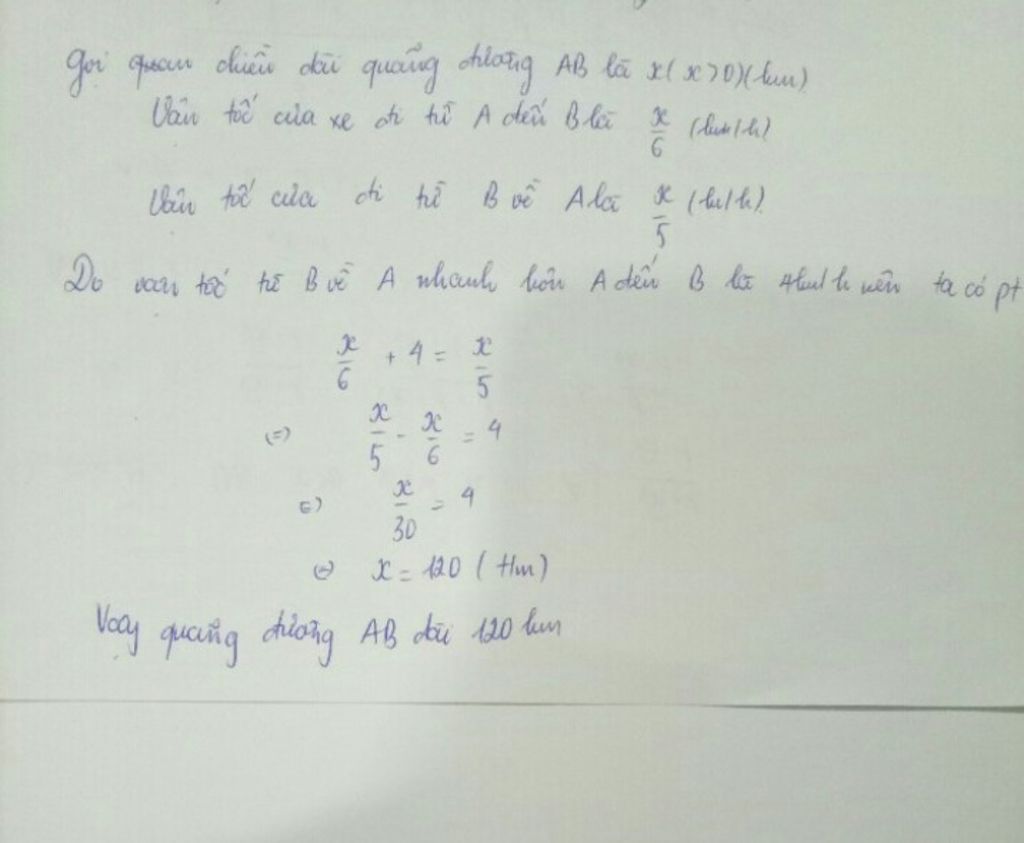 Gọi quan chiều dài quãng đường AB là x (x>0)(km)
Vân tốc của xe đi từ A đến B là x/6 (km/h)
Vân tốc của đi từ B về A là x/5 (km/h)
Do van tốc từ B về A nhanh hơn A đến B là 4km/h nên ta có pt
x/6 + 4 = x/5
(=) x/5 - x/6 = 4
(=) x/30 = 4
(=) x = 120 (tm)
Vậy quãng đường AB dài 120 km